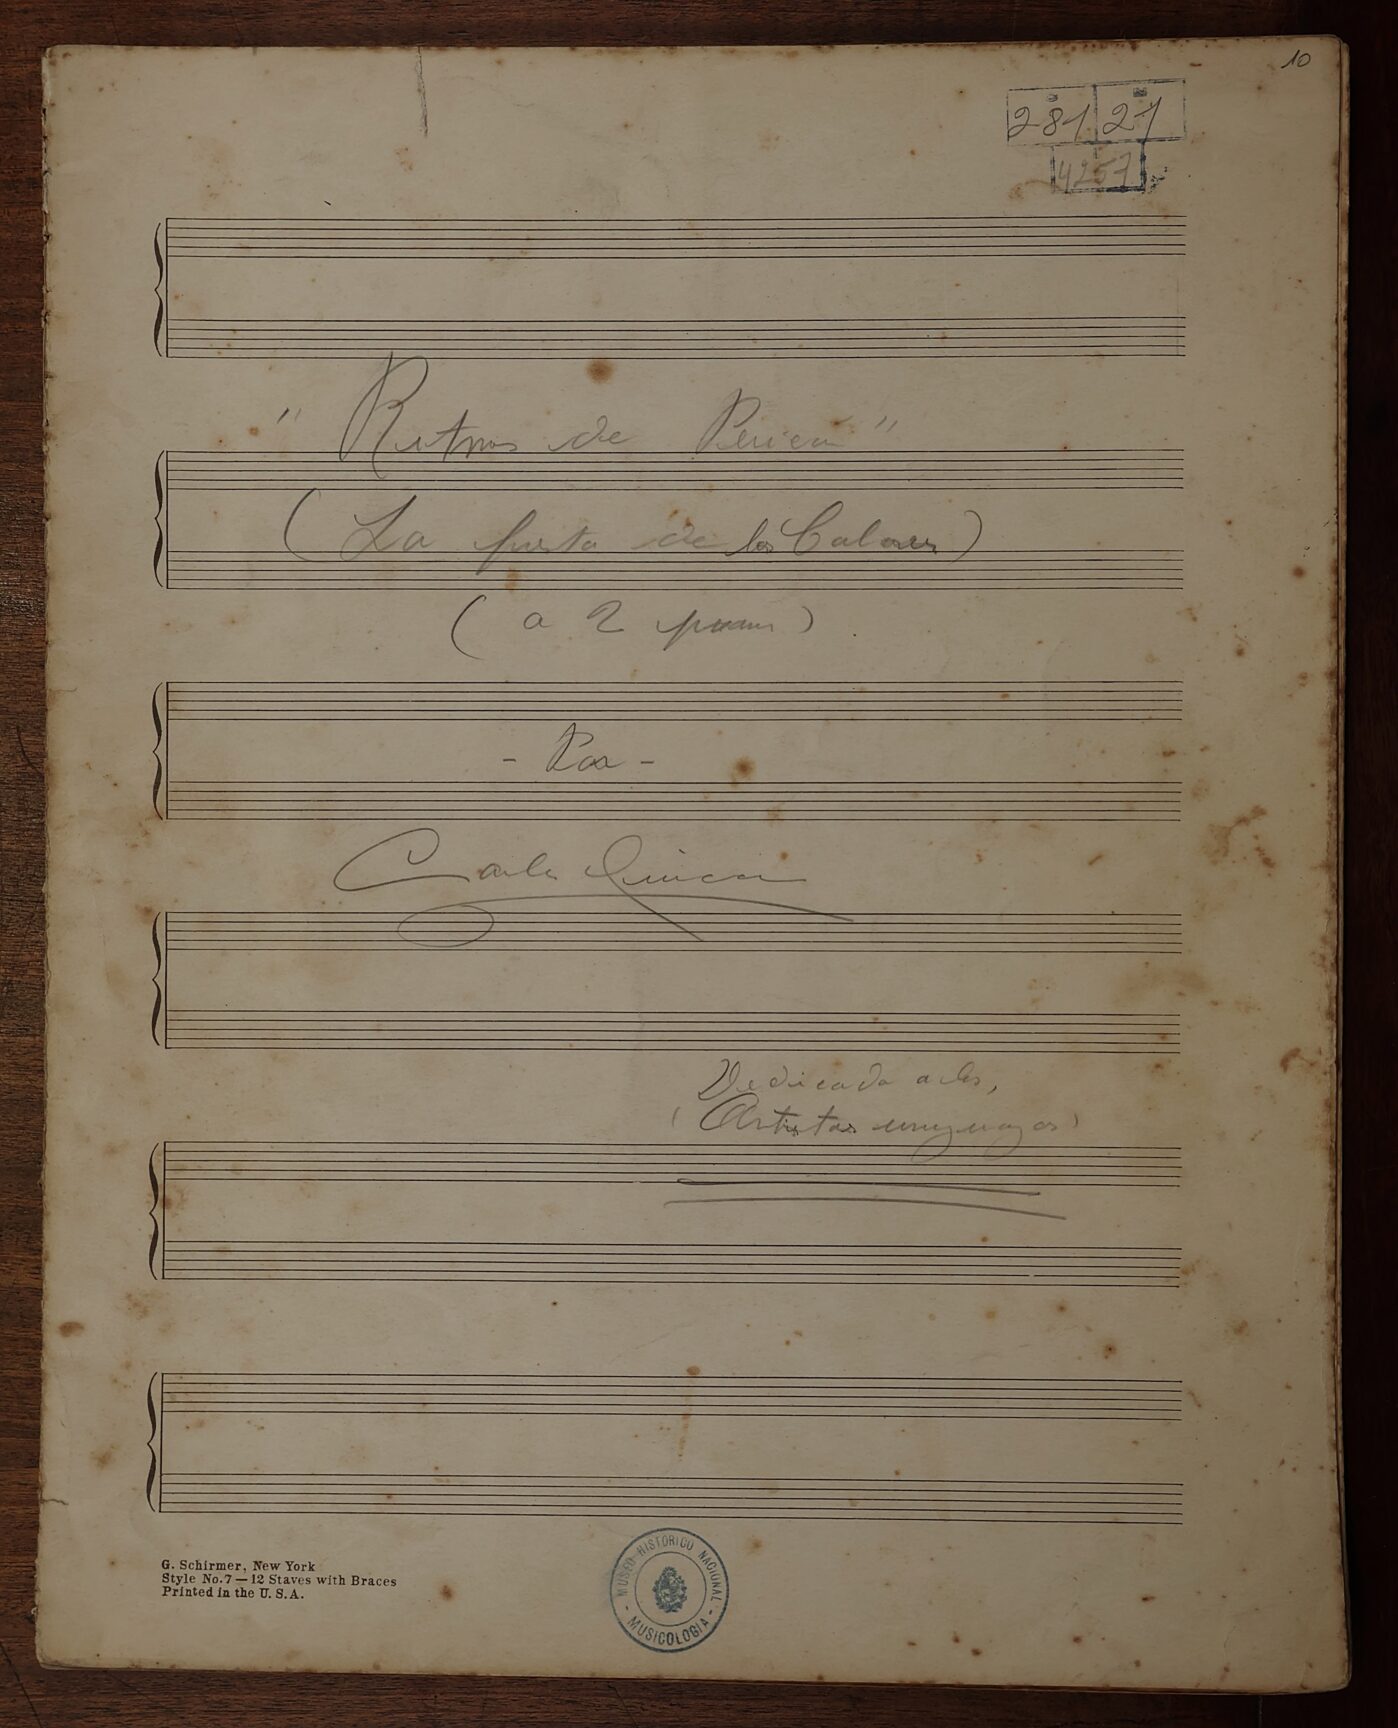 10
281 21
4257
" Ritmos de Pericon "
( La fiesta de los Colores )
( a 2 pianos )
- Por -
Carlos
Dedicada a los,
( Artistas uruguayos )
G. Schirmer, New York
Style No. 7 — 12 Staves with Braces
Printed in the U. S. A.
MUSEO HISTORICO NACIONAL
- MUSICOLOGIA -